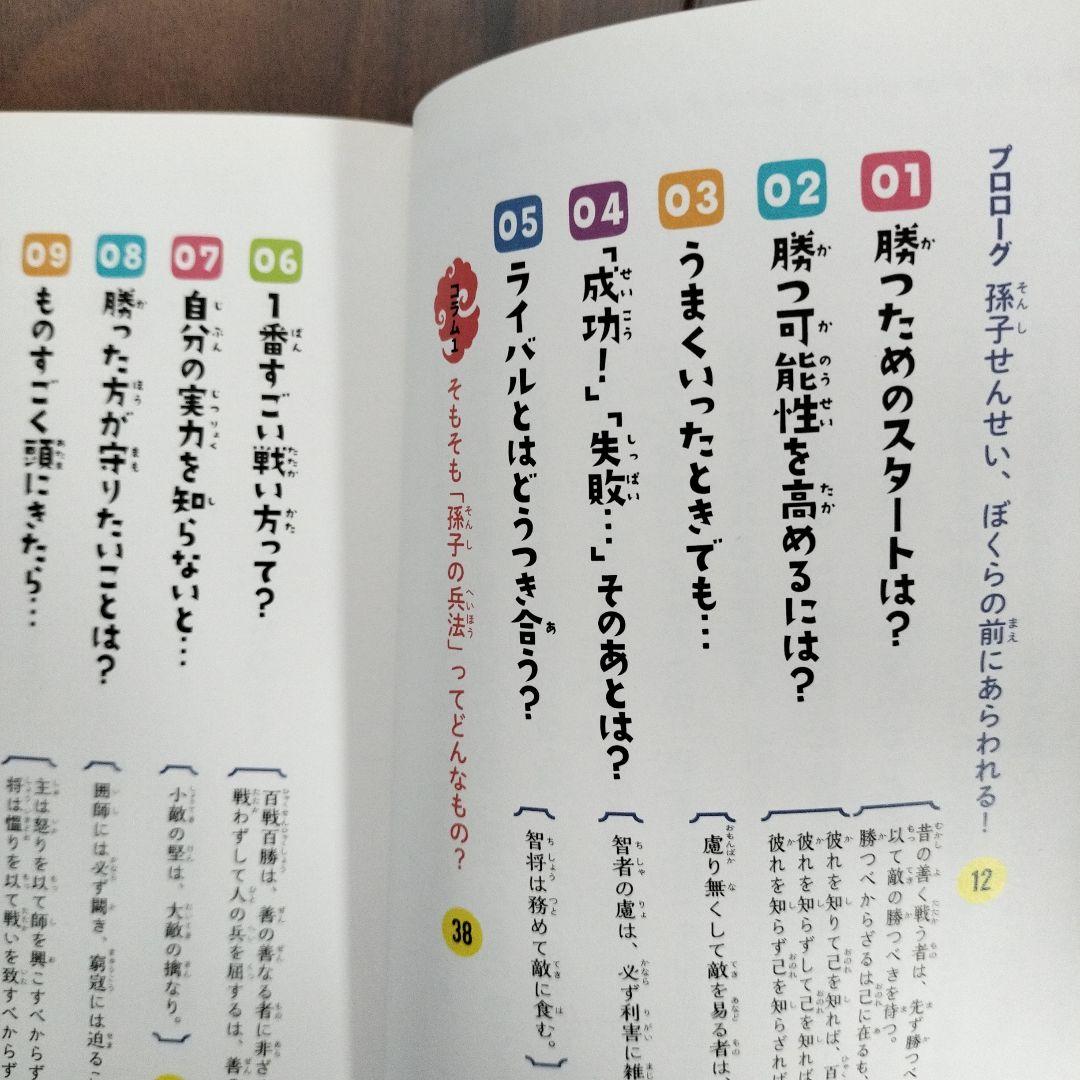 プロローグ 孫子せんせい、ぼくらの前にあらわれる!
12
01
勝つためのスタートは?
昔の善く戦う者は、先ず勝つべ
以て敵の勝つべきを待つ。
勝つべからざるは己に在るも、
02
勝つ可能性を高めるには?
彼れを知りて己を知れば、百
彼れを知らずして己を知れば
彼れを知らず己を知らざれば
03
うまくいったときでも…
慮り無くして敵を易る者は、
04
「成功!」「失敗…」そのあとは?
智者の慮は、必ず利害に雑
05
ライバルとはどうつき合う?
智将は務めて敵に食む。
コラム1
そもそも「孫子の兵法」ってどんなもの?
38
06
1番すごい戦い方って?
百戦百勝は、善の善なる者に非ざ
戦わずして人の兵を屈するは、善
07
自分の実力を知らないと…
小敵の堅は、大敵の擒なり。
08
勝った方が守りたいことは?
囲師には必ず闕き、窮寇には迫るこ
09
ものすごく頭にきたら…
主は怒りを以て師を興こすべからず
将は慍りを以て戦いを致すべからず